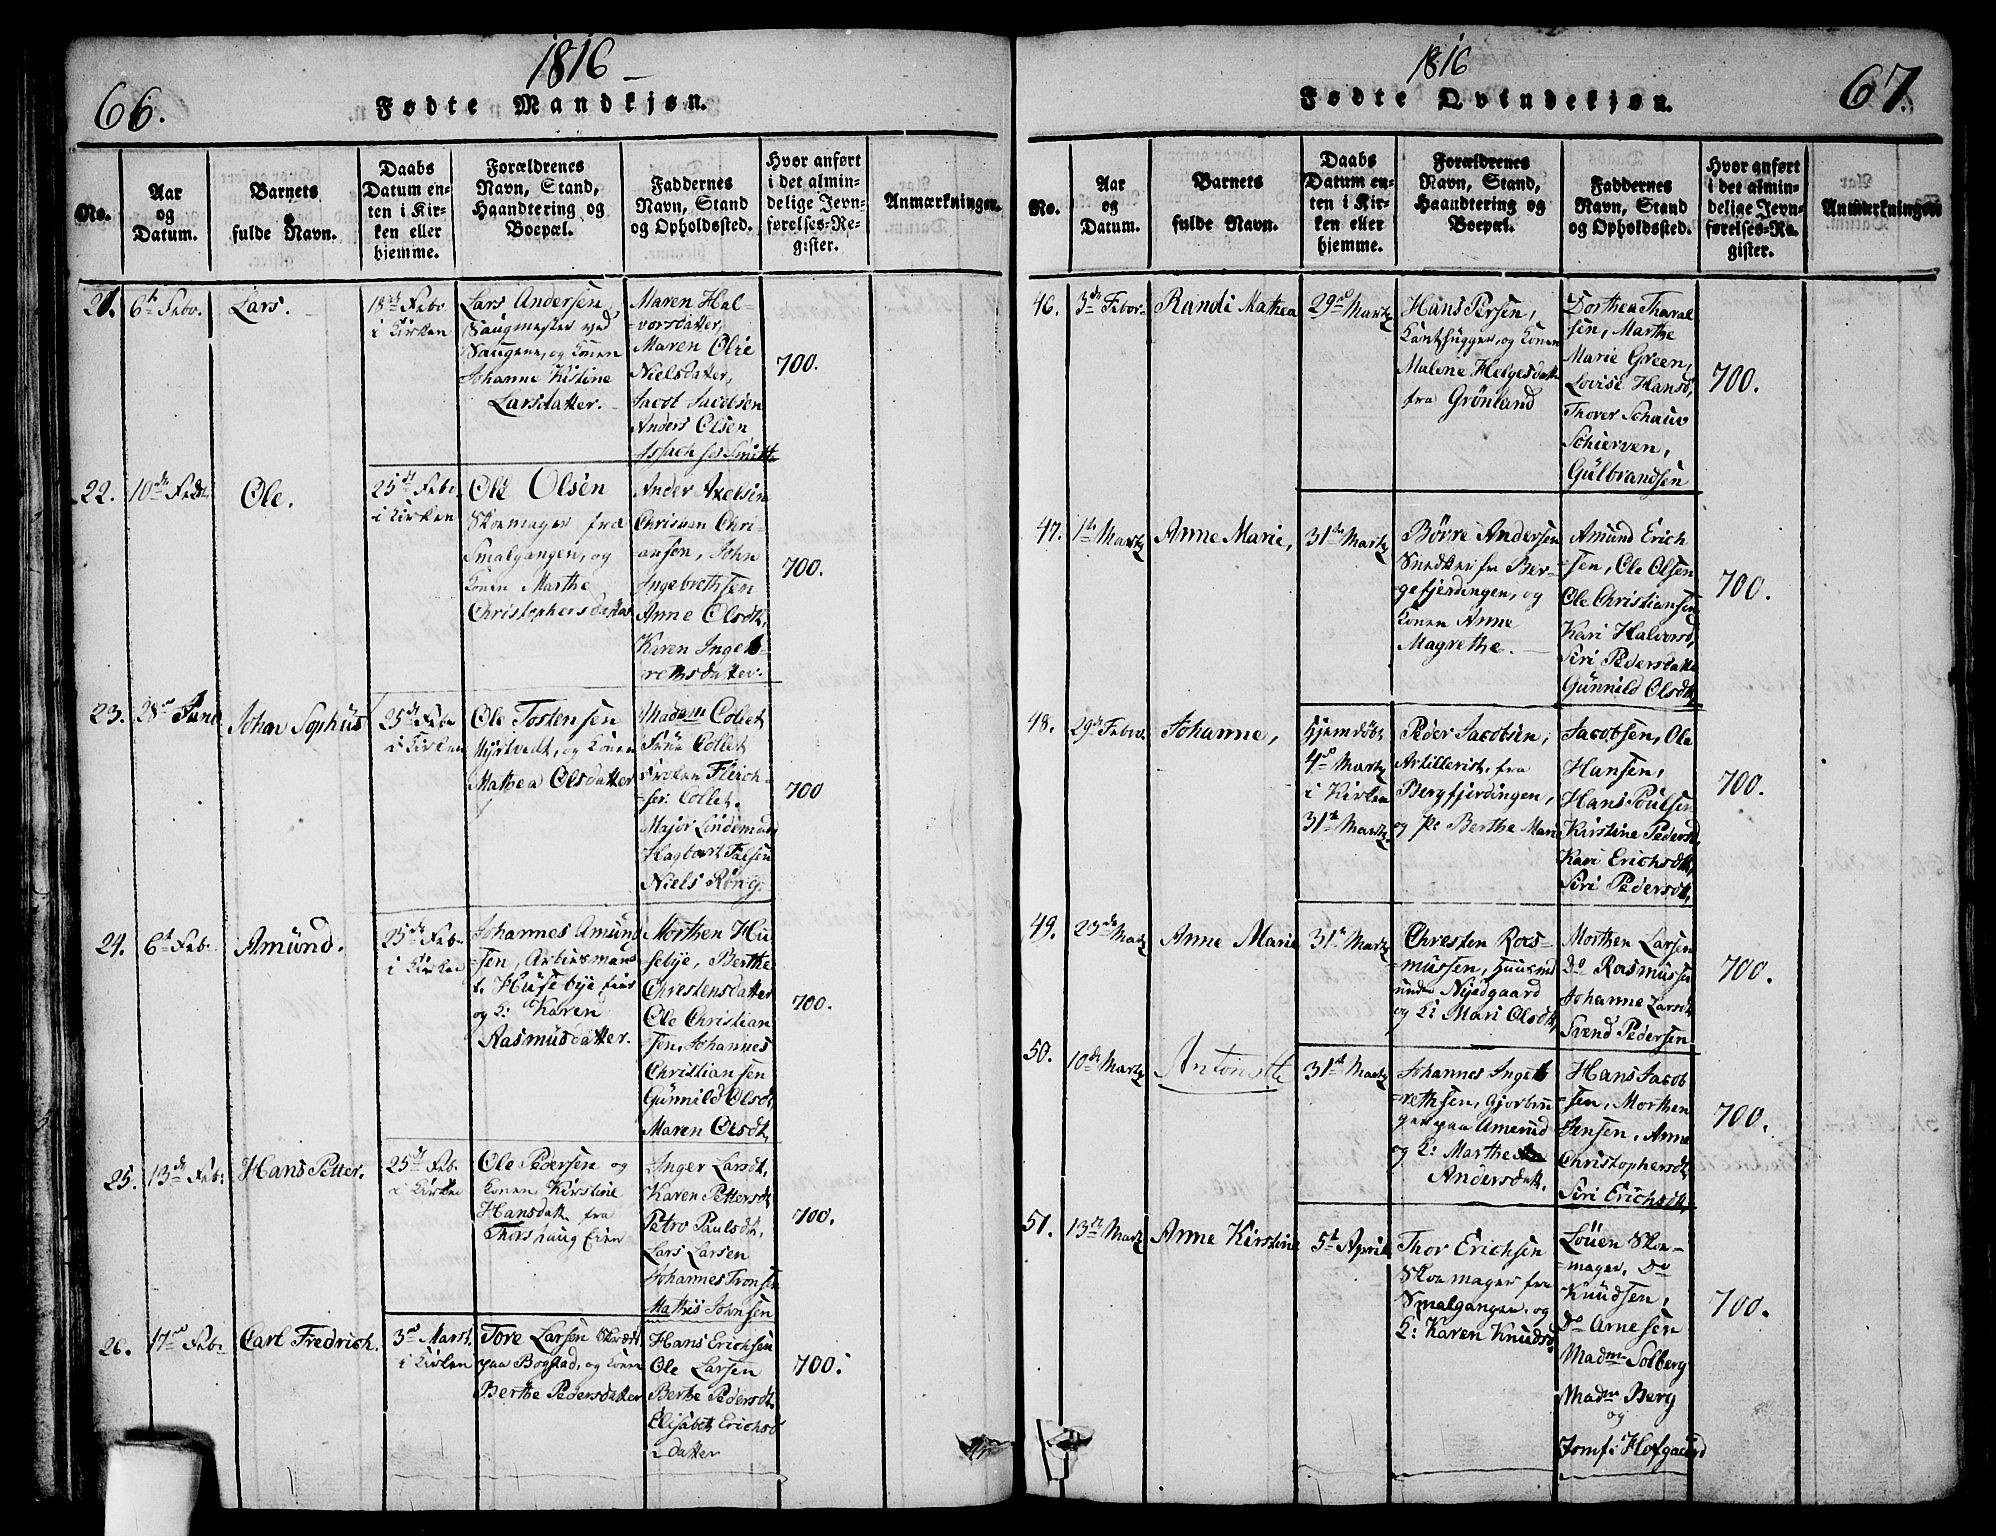 1816
66.
Fødte Mandkjøn.
No.
Aar
og
Datum.
Barnets
fulde Navn.
Daabs
Datum en-
ten i Kir-
ken eller
hjemme.
Forældrenes
Navn, Stand,
Haandtering og
Boepæl.
Faddernes
Navn, Stand
og Opholdssted.
Hvor anført
i det almin-
delige Jevn-
førelses-Re-
gister.
Anmærkninger.
21.
6te Febr.
Lars.
18de Febr
i Kirken
Lars Andersen
Saugmester ved
Saugene, og Konen
Johanne Kistine
Larsdatter.
Maren Hal-
vorsdatter,
Maren Olie
Nielsdatter,
Jacob Jacobsen
Anders Olsen
700.
22.
10de Febr
Ole.
25de Febr
i Kirken
Ole Olsen
Skoemager fra
Smalgangen, og
Konen Marthe
Christophersdatter
Ander Axelsen
Christian Chri-
ansøn, John
Ingebrethsen
Anne Olsdt,
Karen Ingeb-
rethsdatter.
700.
23.
28de Janu
Johan Sophus
25de Feb
i Kirken
Ole Tostensen
Myrtvedt, og Konen
Mathea Olsdatter
Madam Collet
Frue Collet
Frølen Fleich-
=ser: Collet.
Major Lindeman
Hagbart Falsen
Niels Røng.
700
24.
6te Feb.
Amund.
25de Feb.
i Kirken
Johannes Amund
=sen, Arbeidsmand
Husebye
og K: Karen
Rasmusdatter.
Morthen Hu
=sebye, Berthe
Chrestensdatter
Ole Christian
sen, Johannes
Christiansen
Gunnild Olsdt,
Maren Olsdt,
700.
25.
13de Feb:
Hans Petter.
25de Feb.
i Kirken
Ole Pedersen og
Konen Kirstine
Hansdatt. fra
Thorshaug Eier
Inger Larsdt,
Karen Pettersdt
Petro Paulsdt,
Lars Larsen
Johannes Tronsen
Mathis Johnsen
700.
26.
17de Feb.
Carl Fredrich.
3de Marst.
i Kirken
Tore Larsen Skræd.
paa Bogstad, og Konen
Berthe Pedersdatter
Hans Erichsen
Ole Larsen
Berthe Pedersdt.
Elisabeth Erichs
=datter
700.
1816
67.
Fødte Qvindekjøn.
No.
Aar
og
Datum.
Barnets
fulde Navn.
Daabs
Datum en-
ten i Kir-
ken eller
hjemme.
Forældrenes
Navn, Stand,
Haandtering og
Boepæl.
Faddernes
Navn, Stand
og Opholdssted.
Hvor anført
i det almin-
delige Jevn-
førelses-Re-
gister.
Anmærkninger
46.
3de Febr
Randi Mathea
29de Martz
Hans Persen,
Kanthugger, og Konen
Malene Helgesdatt
fra Grønland
Dorthea Tharal
sen, Marthe
Marie Green,
Lovise Hansd,
Thover Schauv
Schierven,
Gulbrandsen
700.
47.
1te Martz
Anne Marie,
31de Martz
Børre Andersen
Snedker fra Ber-
gefjerdingen, og
Konen Anne
Magrethe.
Amund Erich
sen, Ole Olsen
Ole Christiansen,
Kari Halvorsd,
Siri Pedersdatt
Gunnild Olsdt,
700.
48.
29de Febr.
Johanne,
Hjemdøbt
4de Martz
i Kirken
31te Martz
Peder Jacobsen,
Artillerist, fra
Bergfjerdingen,
og K: Berthe Marie
Jacobsen, Ole
Hansen,
Hans Poulsen
Kirstine Pedersd
Kari Erichsdt,
Siri Pedersdt,
700.
49.
23de Martz
Anne Marie
31te Martz
Chresten Ras-
=mussen, Huusmd
under Nydgaard
og K: Mari Olsdt,
Morthen Larsen
Do Rasmussen
Johanne Larsdt
Svend Pedersen
700.
50.
10de Martz
Antonette
31te Martz
Johannes Ingeb
=rethsen, Gjorbru
ger paa Amerud
og K: Marthe
Andersdatt.
Hans Jacob
=sen, Morthen
Jensen, Anne
Christophersdt,
Siri Erichsdt,
700.
51.
13de Martz
Anne Kirstine
5te April
Thor Erichsen
Skoemager fra
Smalgangen, og
K: Karen Knudsd
Løuen Skoe-
=mager, Do
Knudsen,
Do Arnesen
Madm Solberg
Madm Berg
og
Jomf: Hofgaard
700.